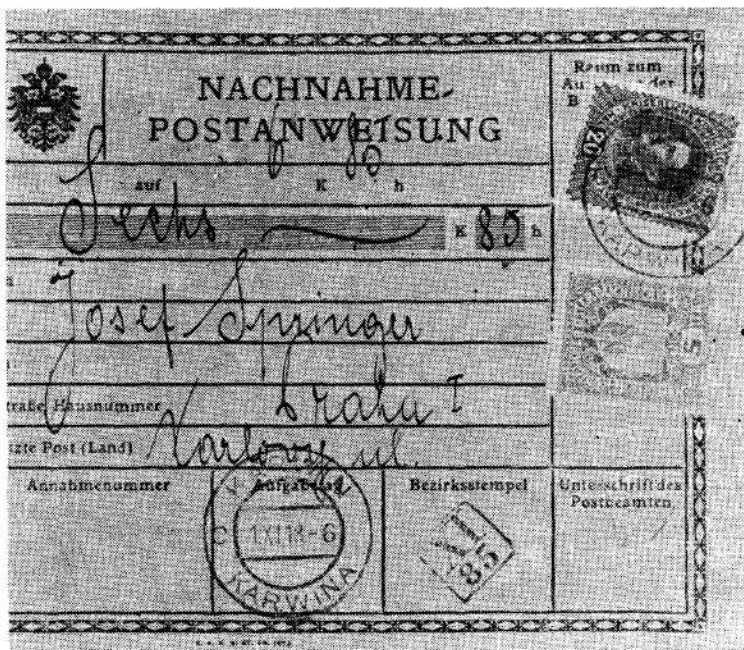 NACHNAHME-
POSTANWEISUNG
Raum zum
6 85
auf K h
Sechs K 85 h
Josef Springer
Praha I
traße Hausnummer
Karlova ul.
tzte Post (Land)
20
KARWINA
5
Annahmenummer
Aufgabetag
Bezirksstempel
Unterschrift des
Postbeamten
KARWIN
C
KARWINA
VI
85